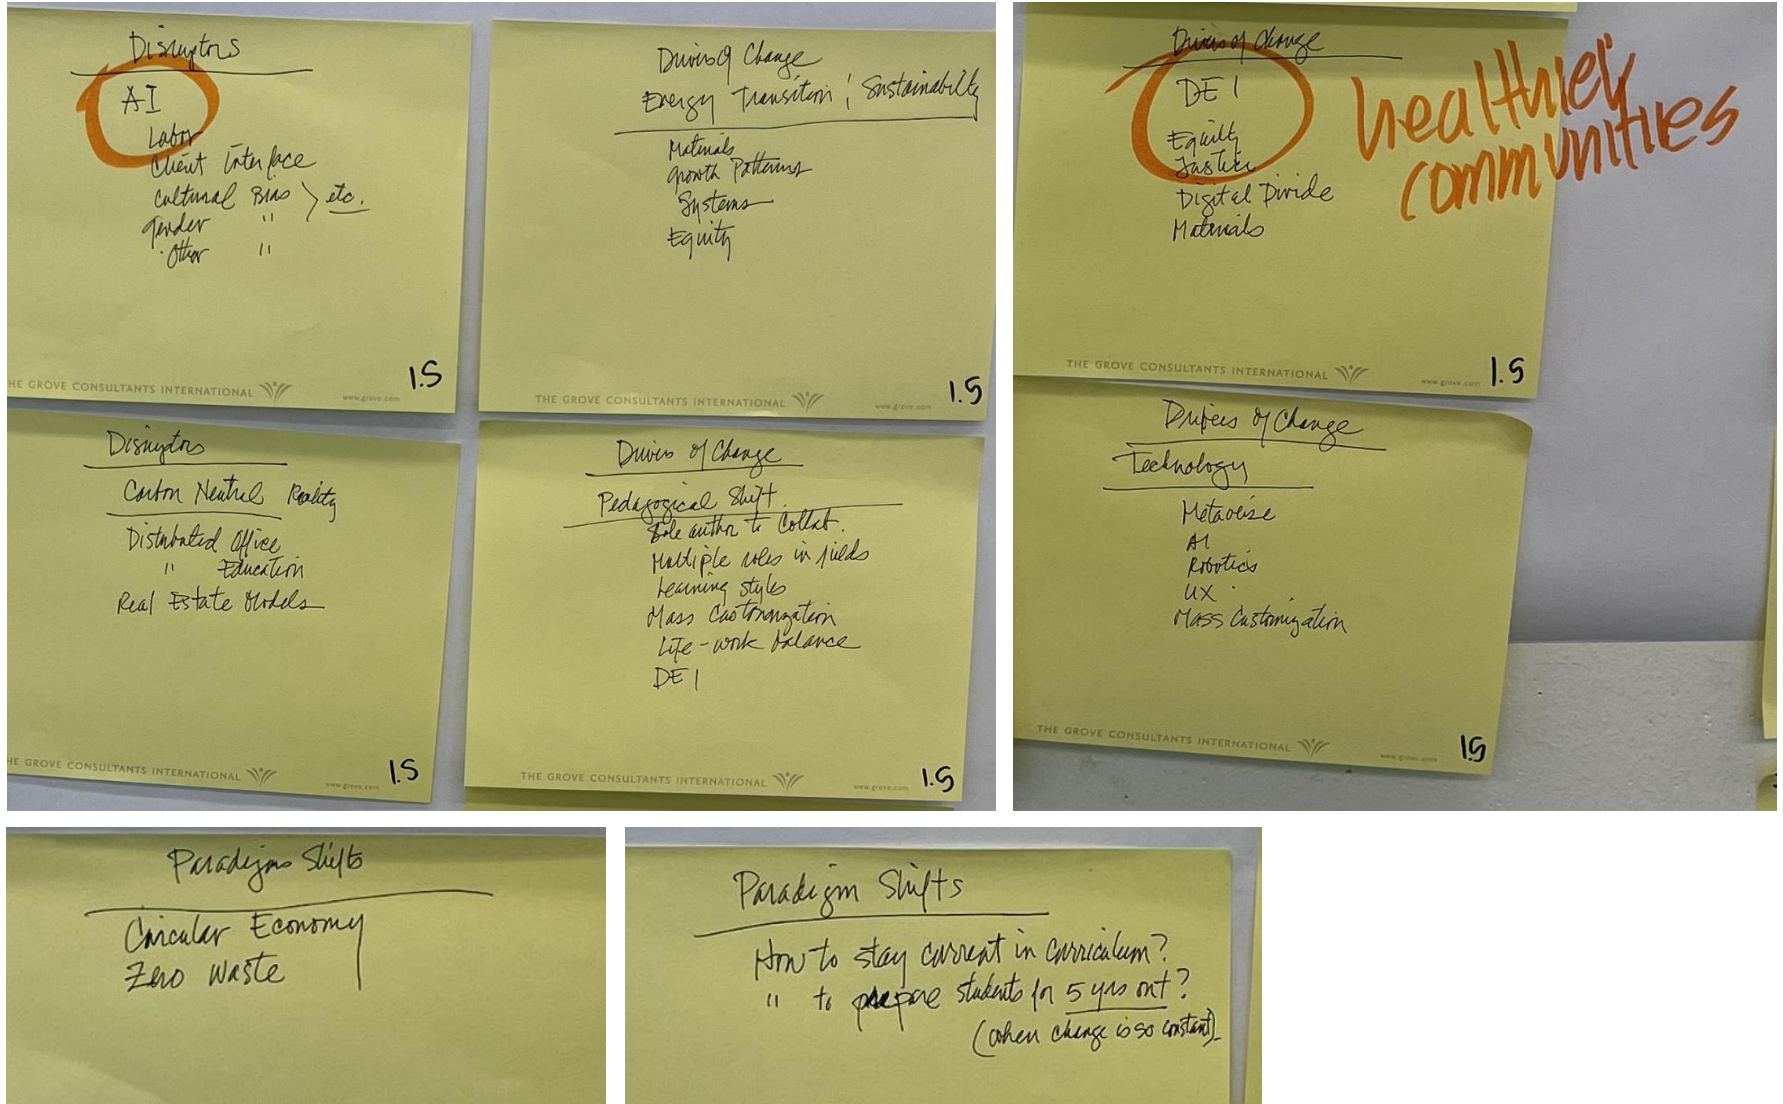 Disruptors
AI
Labor
Client Interface
Cultural Bias > etc.
Gender "
Other "
HE GROVE CONSULTANTS INTERNATIONAL
www.grove.com
1.5
Drivers of Change
Energy Transition ; Sustainability
Materials
Growth Patterns
Systems
Equity
THE GROVE CONSULTANTS INTERNATIONAL
www.grove.com
1.5
Drivers of Change
DEI
Equity
Justice
Digital Divide
Materials
healthier
communities
THE GROVE CONSULTANTS INTERNATIONAL
www.grove.com
1.5
Disruptors
Carbon Neutral Reality
Distributed Office
" Education
Real Estate Models
HE GROVE CONSULTANTS INTERNATIONAL
www.grove.com
1.5
Drivers of Change
Pedagogical Shift
Sole author to Collab.
Multiple roles in fields
Learning styles
Mass Customization
Life-work balance
DEI
THE GROVE CONSULTANTS INTERNATIONAL
www.grove.com
1.5
Drivers of Change
Technology
Metaverse
AI
Robotics
UX
Mass Customization
THE GROVE CONSULTANTS INTERNATIONAL
www.grove.com
1.5
Paradigm Shifts
Circular Economy
Zero Waste
Paradigm Shifts
How to stay current in curriculum?
" to prepare students for 5 yrs out?
(when change is so constant)